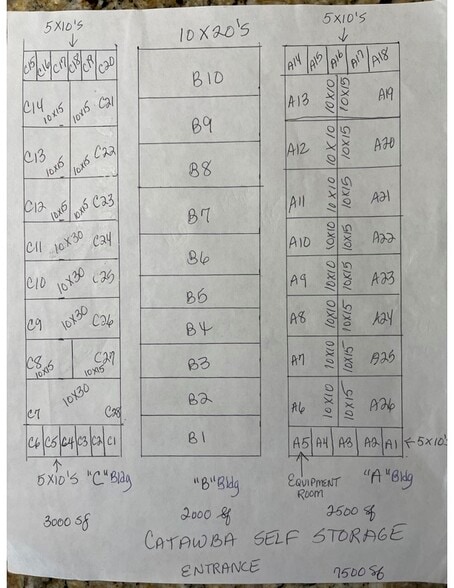 5X10'S
10X20'S
5X10'S
C15 C16 C17 C18 C19 C20
A14 A15 A16 A17 A18
B10
C14 10X15 C21
A13 10X10 10X15 A19
B9
C13 10X15 10X15 C22
A12 10X10 10X15 A20
B8
C12 10X15 10X15 C23
B7
A11 10X10 10X15 A21
C11 10X30 C24
A10 10X10 10X15 A22
B6
C10 10X30 C25
A9 10X10 10X15 A23
B5
C9 10X30 C26
B4
A8 10X10 10X15 A24
C8 10X15 10X15 C27
B3
A7 10X10 10X15 B25
10X30
C7 C28
B2
A6 10X10 10X15 A26
C6 C5 C4 C3 C2 C1
B1
A5 A4 A3 A2 A1 5X10'S
5X10'S "C" Bldg
"B" Bldg
EQUIPMENT
ROOM
"A" Bldg
3000 Sf
2000 Sf
2500 Sf
CATAWBA SELF STORAGE
ENTRANCE
7500 Sf